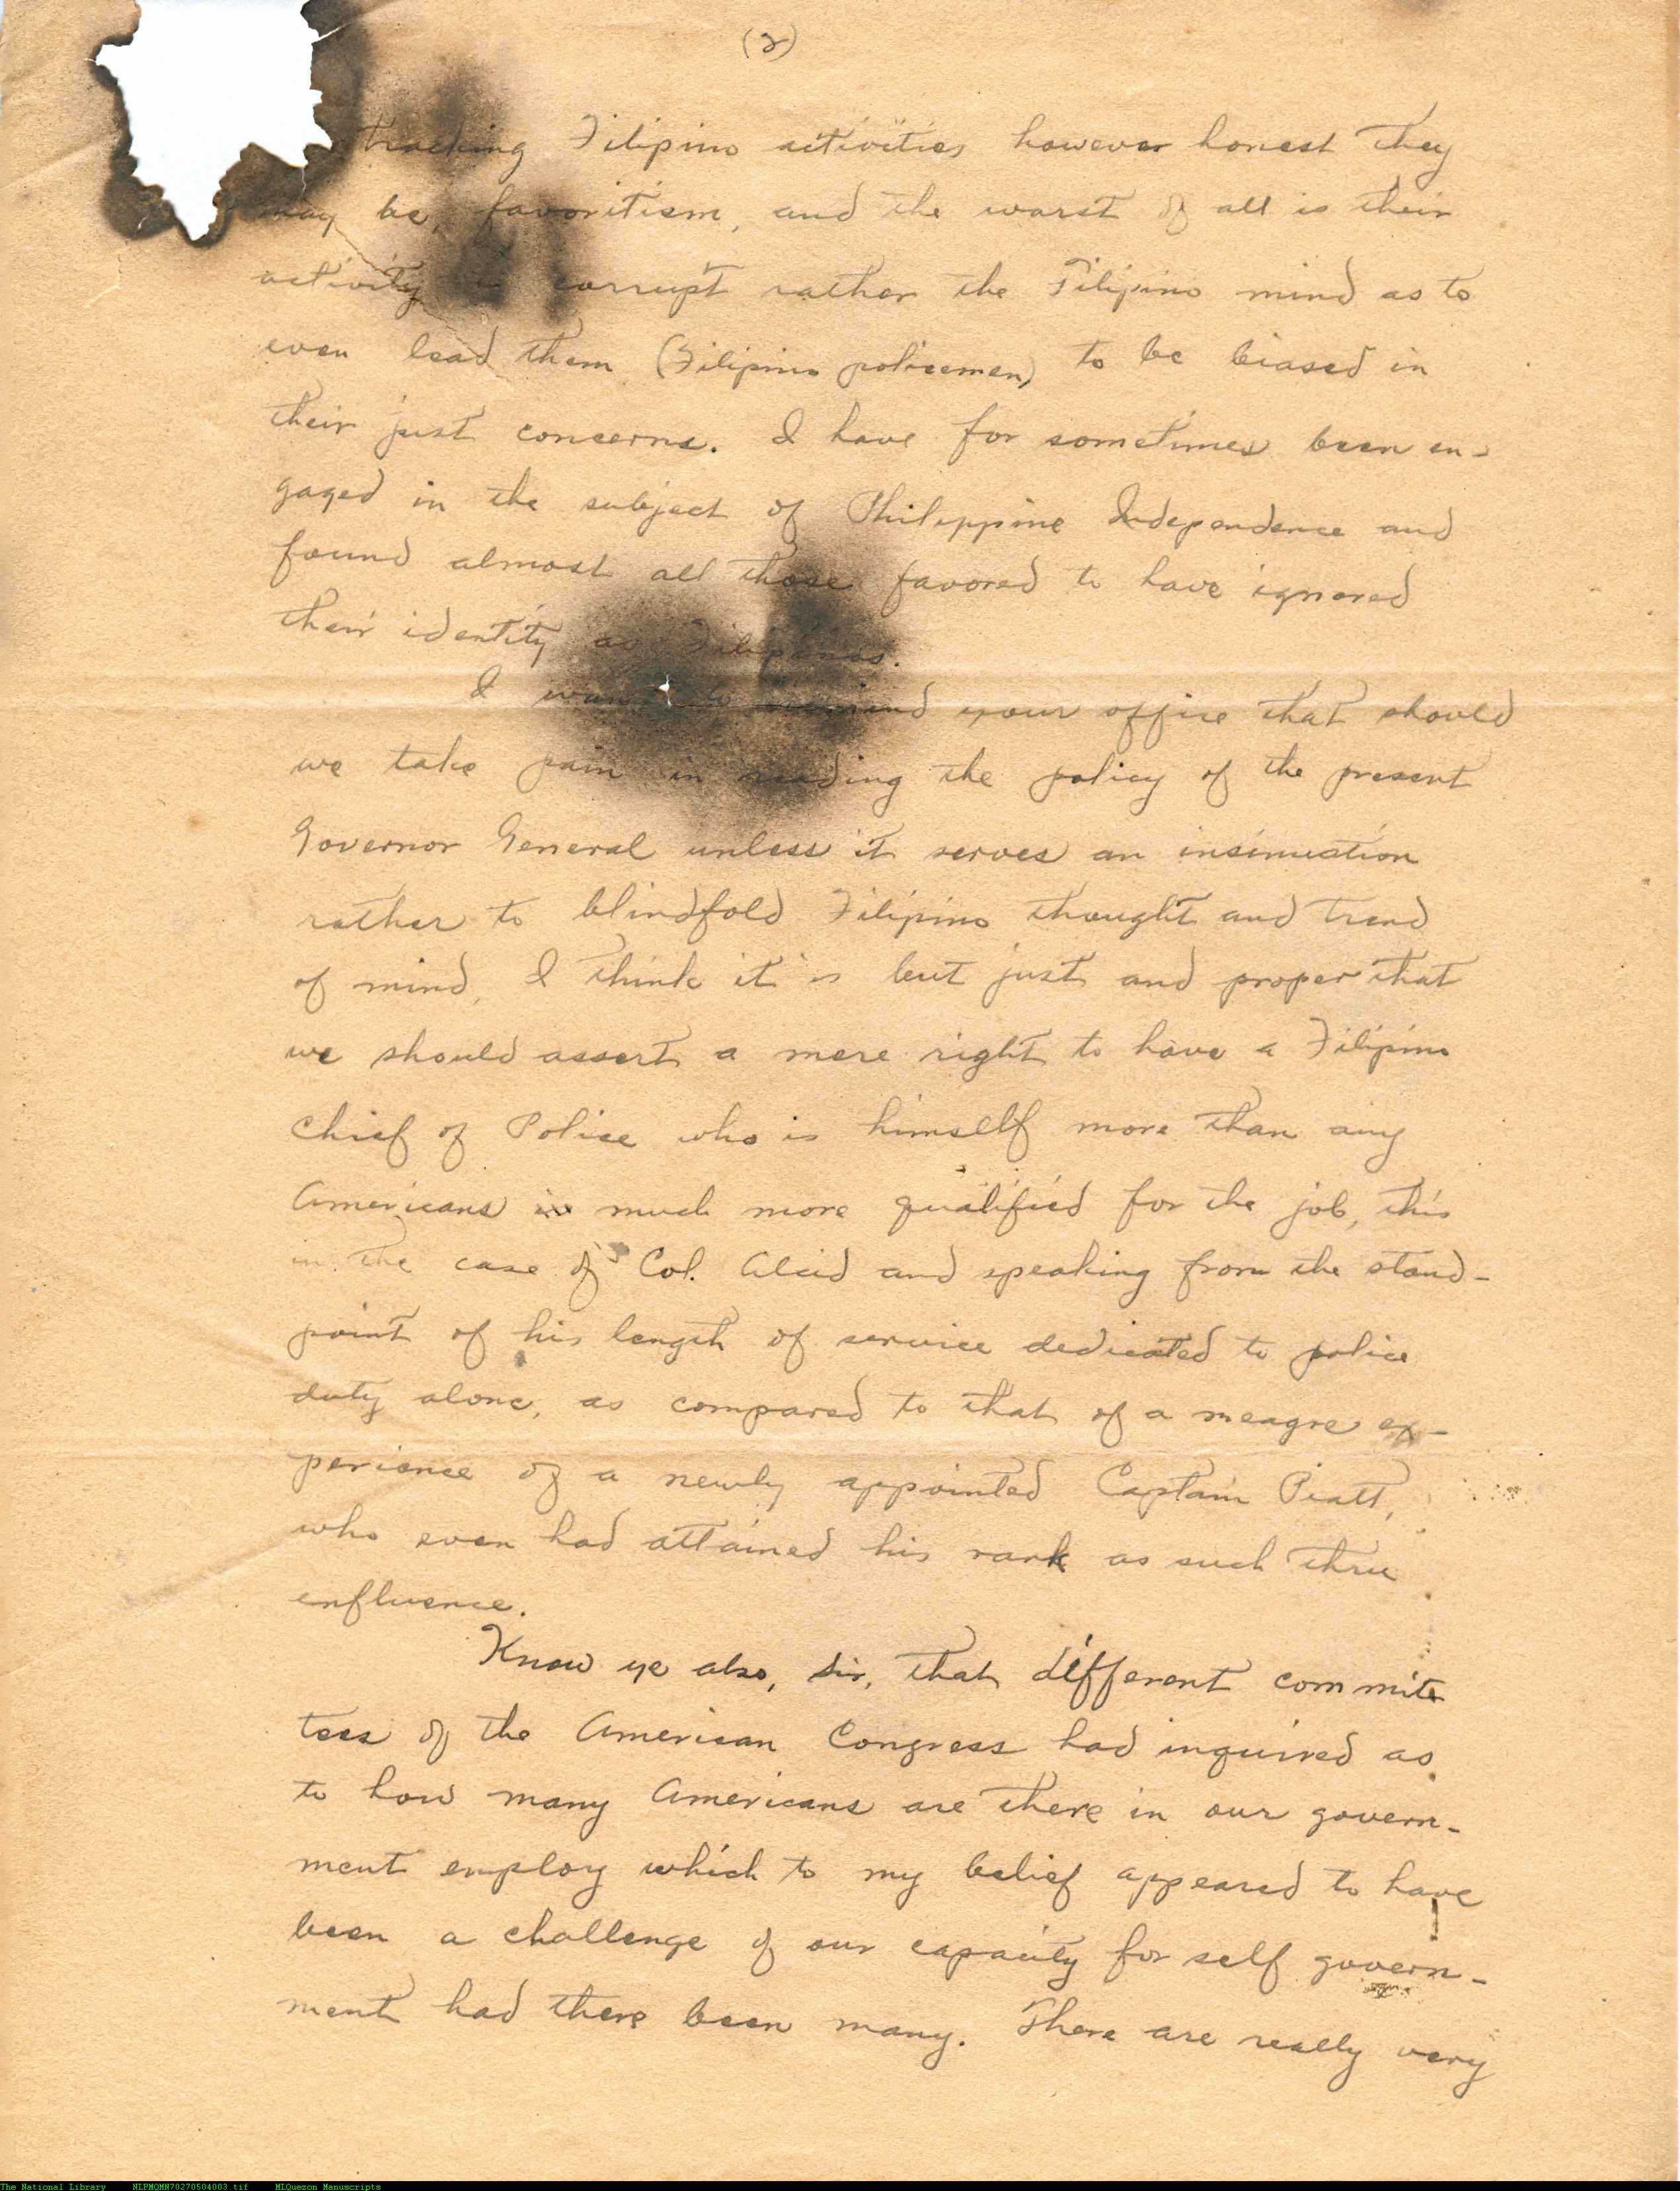 (2)
tracking Filipino activities however honest they
may be, favoritism, and the worst of all is their
activity corrupt rather the Filipino mind as to
even lead them (Filipino policemen) to be biased in
their just concerns. I have for sometimes been en-
gaged in the subject of Philippine Independence and
found almost all those favored to have ignored
their identity as Filipinos.
I want to remind your office that should
we take pain in reading the policy of the present
Governor General unless it serves an insinuation
rather to blindfold Filipino thought and trend
of mind, I think it is but just and proper that
we should assert a mere right to have a Filipino
Chief of Police who is himself more than any
Americans is much more qualified for the job, this
in the case of Col. Alcid and speaking from the stand-
point of his length of service dedicated to police
duty alone, as compared to that of a meagre ex-
perience of a newly appointed Captain Piatt,
who even had attained his rank as such thru
enfluence.
Know ye also, Sir, that different commit
tees of the American Congress had inquired as
to how many Americans are there in our govern-
ment employ which to my belief appeared to have
been a challenge of our capacity for self govern-
ment had there been many. There are really very
The National Library NLPMQMN70270504003.tif MLQuezon Manuscripts